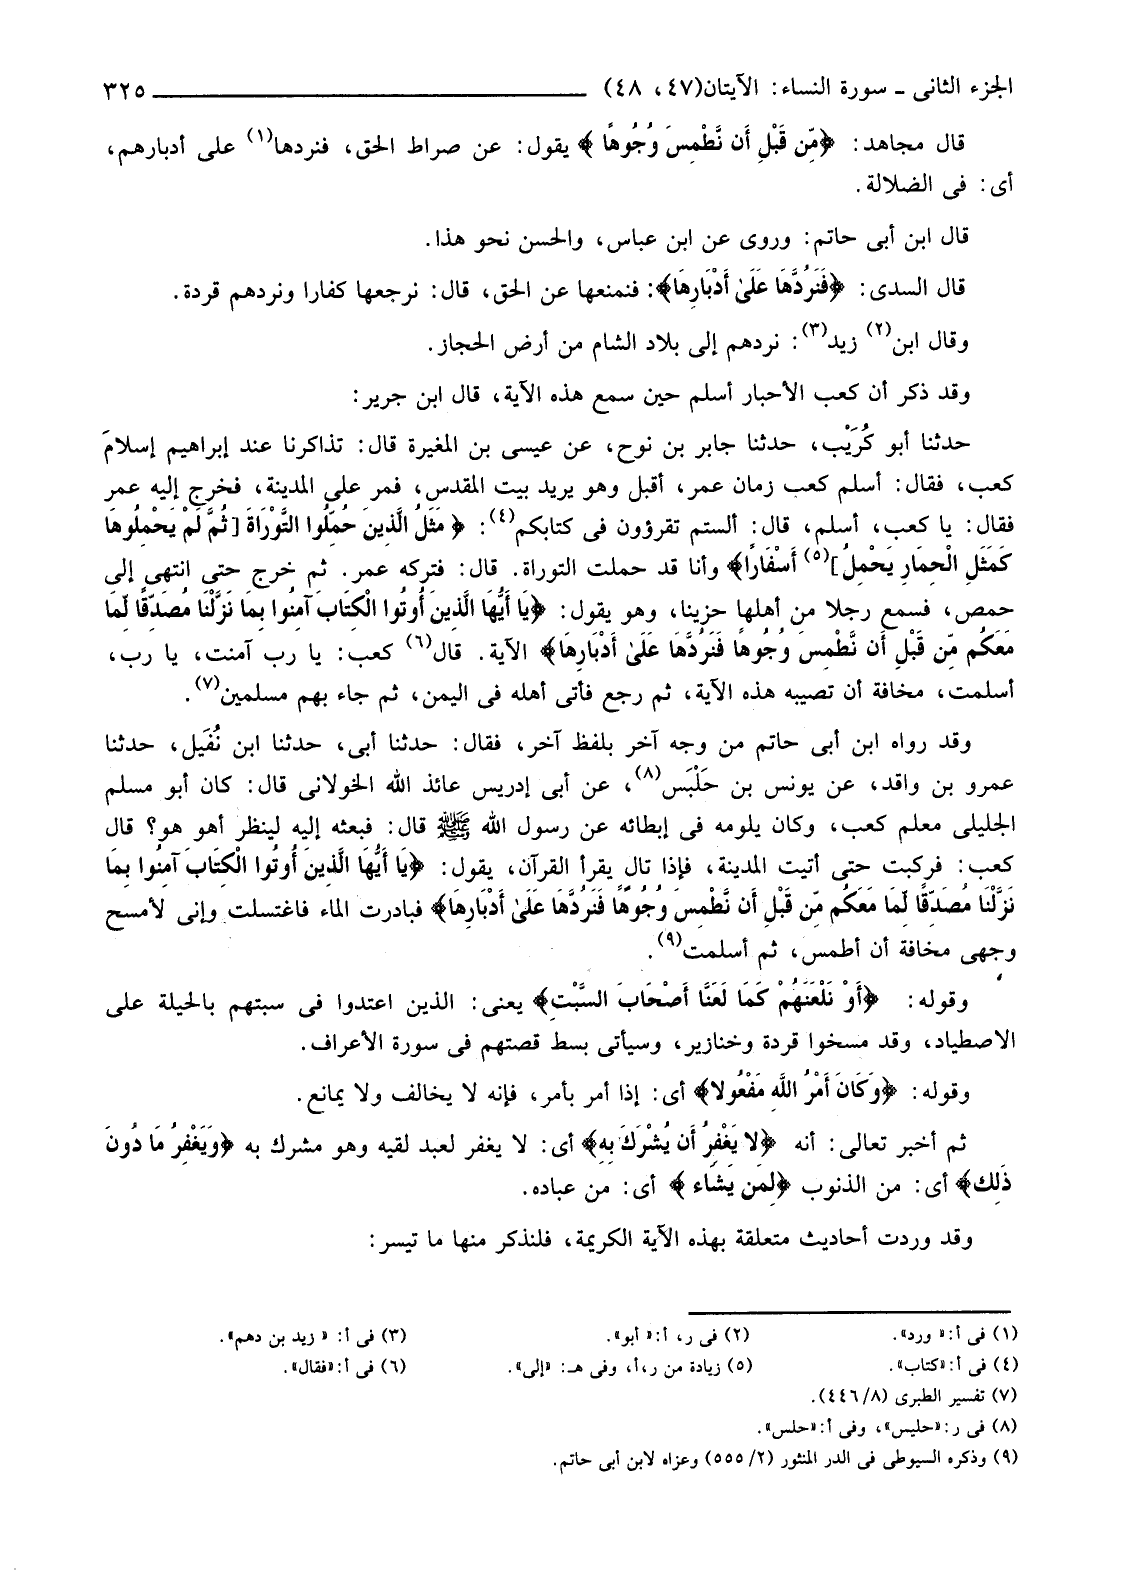 الجزء الثانى ـ سورة النساء: الآيتان(٤٧، ٤٨) ٣٢٥
قال مجاهد: ﴿مِّن قَبْلِ أَن نَّطْمِسَ وُجُوهًا ﴾ يقول: عن صراط الحق، فنردها(١) على أدبارهم،
أى: فى الضلالة.
قال ابن أبى حاتم: وروى عن ابن عباس، والحسن نحو هذا.
قال السدى: ﴿فَنَرُدَّهَا عَلَىٰ أَدْبَارِهَا﴾: فنمنعها عن الحق، قال: نرجعها كفارا ونردهم قردة.
وقال ابن(٢) زيد(٣): نردهم إلى بلاد الشام من أرض الحجاز.
وقد ذكر أن كعب الأحبار أسلم حين سمع هذه الآية، قال ابن جرير:
حدثنا أبو كُرَيْب، حدثنا جابر بن نوح، عن عيسى بن المغيرة قال: تذاكرنا عند إبراهيم إسلامَ
كعب، فقال: أسلم كعب زمان عمر، أقبل وهو يريد بيت المقدس، فمر على المدينة، فخرج إليه عمر
فقال: يا كعب، أسلم، قال: ألستم تقرؤون فى كتابكم(٤): ﴿ مَثَلُ الَّذِينَ حُمِّلُوا التَّوْرَاةَ [ثُمَّ لَمْ يَحْمِلُوهَا
كَمَثَلِ الْحِمَارِ يَحْمِلُ](٥) أَسْفَارًا﴾ وأنا قد حملت التوراة. قال: فتركه عمر. ثم خرج حتى انتهى إلى
حمص، فسمع رجلا من أهلها حزينا، وهو يقول: ﴿يَا أَيُّهَا الَّذِينَ أُوتُوا الْكِتَابَ آمِنُوا بِمَا نَزَّلْنَا مُصَدِّقًا لِّمَا
مَعَكُم مِّن قَبْلِ أَن نَّطْمِسَ وُجُوهًا فَنَرُدَّهَا عَلَىٰ أَدْبَارِهَا﴾ الآية. قال(٦) كعب: يا رب آمنت، يا رب،
أسلمت، مخافة أن تصيبه هذه الآية، ثم رجع فأتى أهله فى اليمن، ثم جاء بهم مسلمين(٧).
وقد رواه ابن أبى حاتم من وجه آخر بلفظ آخر، فقال: حدثنا أبى، حدثنا ابن نُفَيل، حدثنا
عمرو بن واقد، عن يونس بن حَلْبَس(٨)، عن أبى إدريس عائذ الله الخولانى قال: كان أبو مسلم
الجليلى معلم كعب، وكان يلومه فى إبطائه عن رسول الله ﷺ قال: فبعثه إليه لينظر أهو هو؟ قال
كعب: فركبت حتى أتيت المدينة، فإذا تالٍ يقرأ القرآن، يقول: ﴿يَا أَيُّهَا الَّذِينَ أُوتُوا الْكِتَابَ آمِنُوا بِمَا
نَزَّلْنَا مُصَدِّقًا لِّمَا مَعَكُم مِّن قَبْلِ أَن نَّطْمِسَ وُجُوهًا فَنَرُدَّهَا عَلَىٰ أَدْبَارِهَا﴾ فبادرت الماء فاغتسلت وإنى لأمسح
وجهى مخافة أن أطمس، ثم أسلمت(٩).
وقوله: ﴿أَوْ نَلْعَنَهُمْ كَمَا لَعَنَّا أَصْحَابَ السَّبْتِ﴾ يعنى: الذين اعتدوا فى سبتهم بالحيلة على
الاصطياد، وقد مسخوا قردة وخنازير، وسيأتى بسط قصتهم فى سورة الأعراف.
وقوله: ﴿وَكَانَ أَمْرُ اللَّهِ مَفْعُولا﴾ أى: إذا أمر بأمر، فإنه لا يخالف ولا يمانع.
ثم أخبر تعالى: أنه ﴿لا يَغْفِرُ أَن يُشْرَكَ بِهِ﴾ أى: لا يغفر لعبد لقيه وهو مشرك به ﴿وَيَغْفِرُ مَا دُونَ
ذَلِكَ﴾ أى: من الذنوب ﴿لِمَن يَشَاء ﴾ أى: من عباده.
وقد وردت أحاديث متعلقة بهذه الآية الكريمة، فلنذكر منها ما تيسر:
(١) فى أ:« ورد». (٢) فى ر، أ:« أبو». (٣) فى أ: « زيد بن دهم».
(٤) فى أ:«كتاب». (٥) زيادة من ر،أ، وفى هـ: «إلى». (٦) فى أ:«فقال».
(٧) تفسير الطبرى (٤٤٦/٨).
(٨) فى ر:«حليس»، وفى أ:«حلس».
(٩) وذكره السيوطى فى الدر المنثور (٥٥٥/٢) وعزاه لابن أبى حاتم.